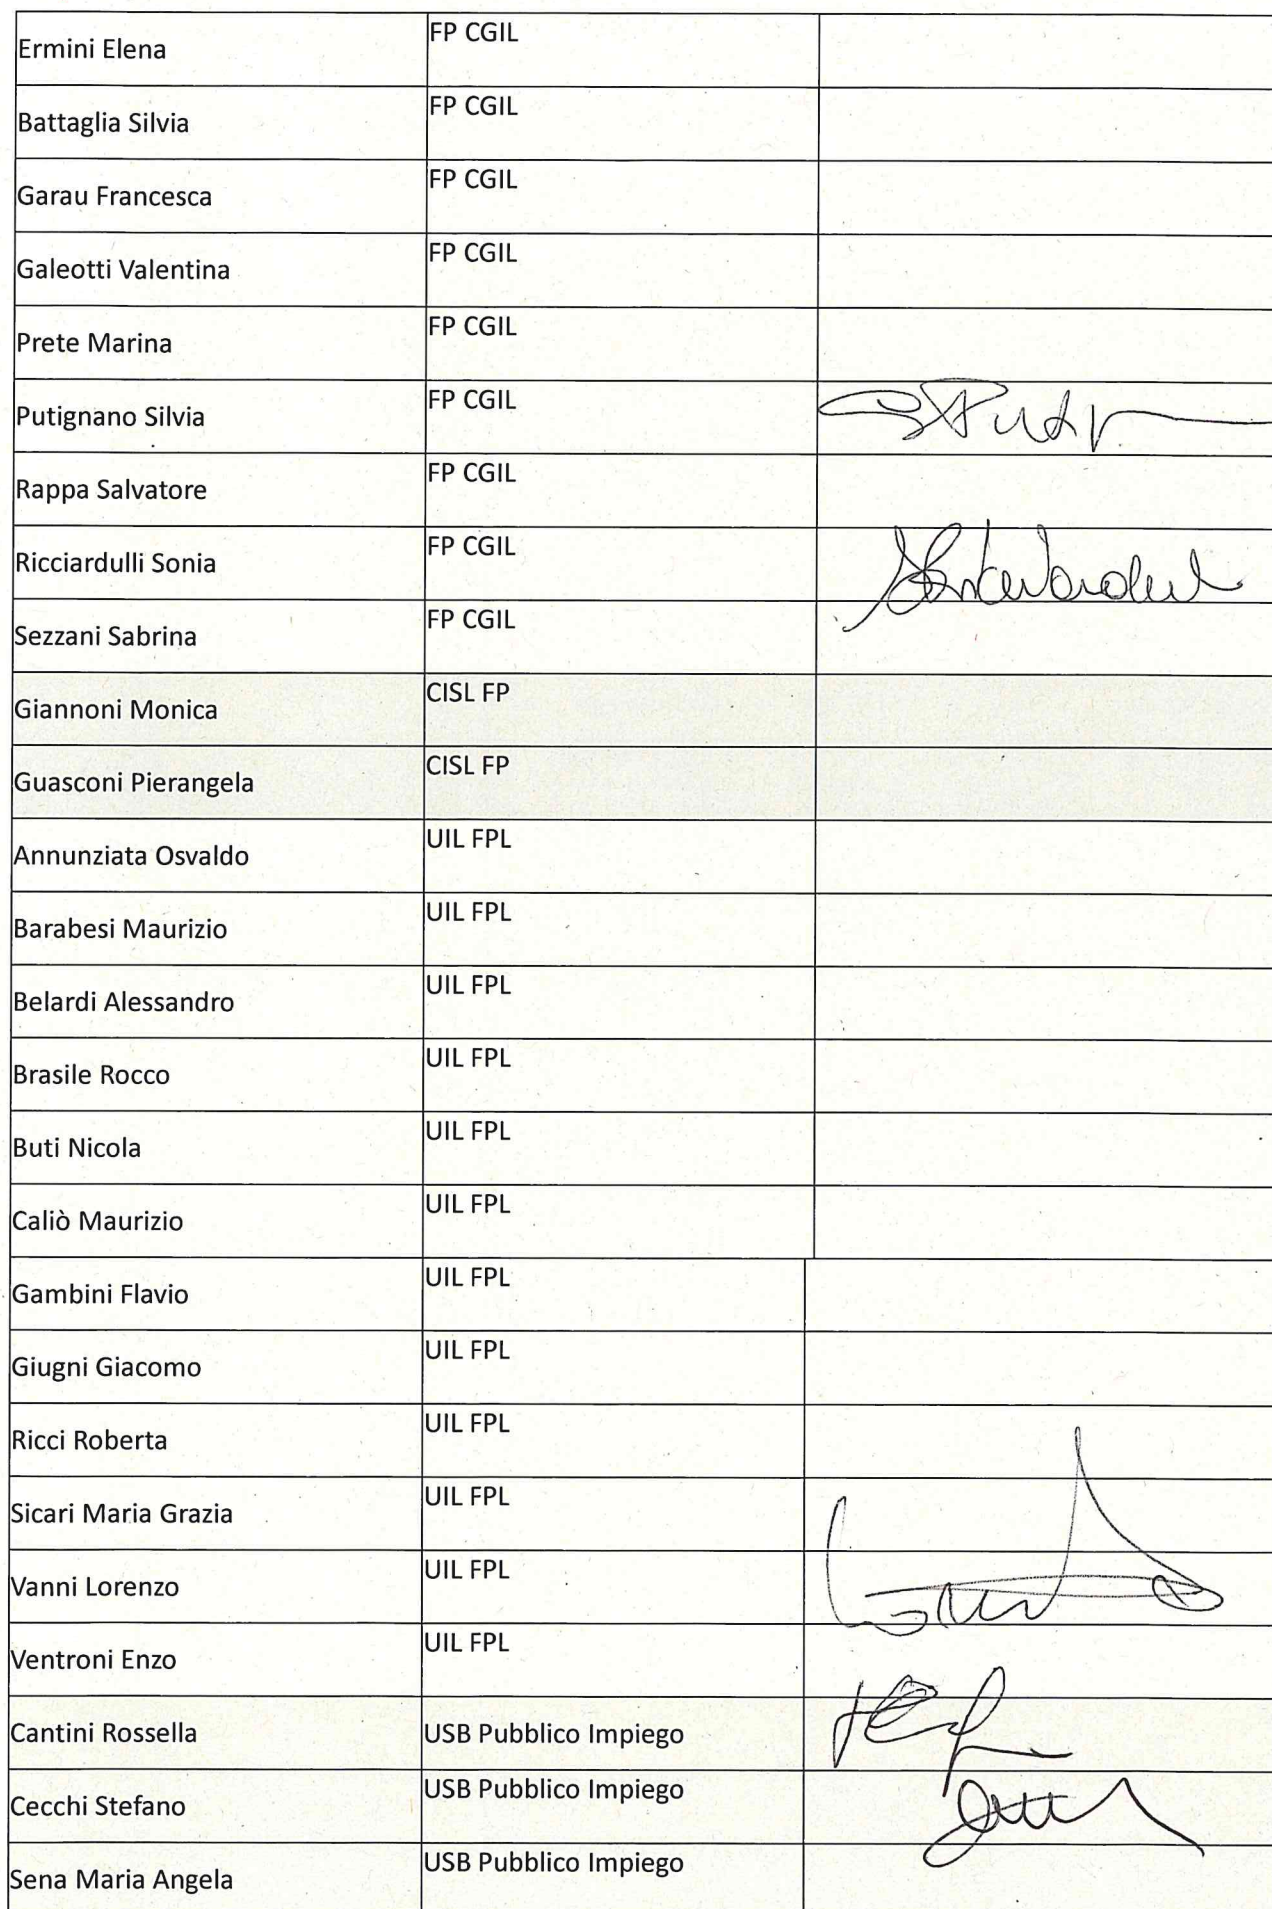 Ermini Elena FP CGIL
Battaglia Silvia FP CGIL
Garau Francesca FP CGIL
Galeotti Valentina FP CGIL
Prete Marina FP CGIL
Putignano Silvia FP CGIL
Rappa Salvatore FP CGIL
Ricciardulli Sonia FP CGIL
Sezzani Sabrina FP CGIL
Giannoni Monica CISL FP
Guasconi Pierangela CISL FP
Annunziata Osvaldo UIL FPL
Barabesi Maurizio UIL FPL
Belardi Alessandro UIL FPL
Brasile Rocco UIL FPL
Buti Nicola UIL FPL
Caliò Maurizio UIL FPL
Gambini Flavio UIL FPL
Giugni Giacomo UIL FPL
Ricci Roberta UIL FPL
Sicari Maria Grazia UIL FPL
Vanni Lorenzo UIL FPL
Ventroni Enzo UIL FPL
Cantini Rossella USB Pubblico Impiego
Cecchi Stefano USB Pubblico Impiego
Sena Maria Angela USB Pubblico Impiego